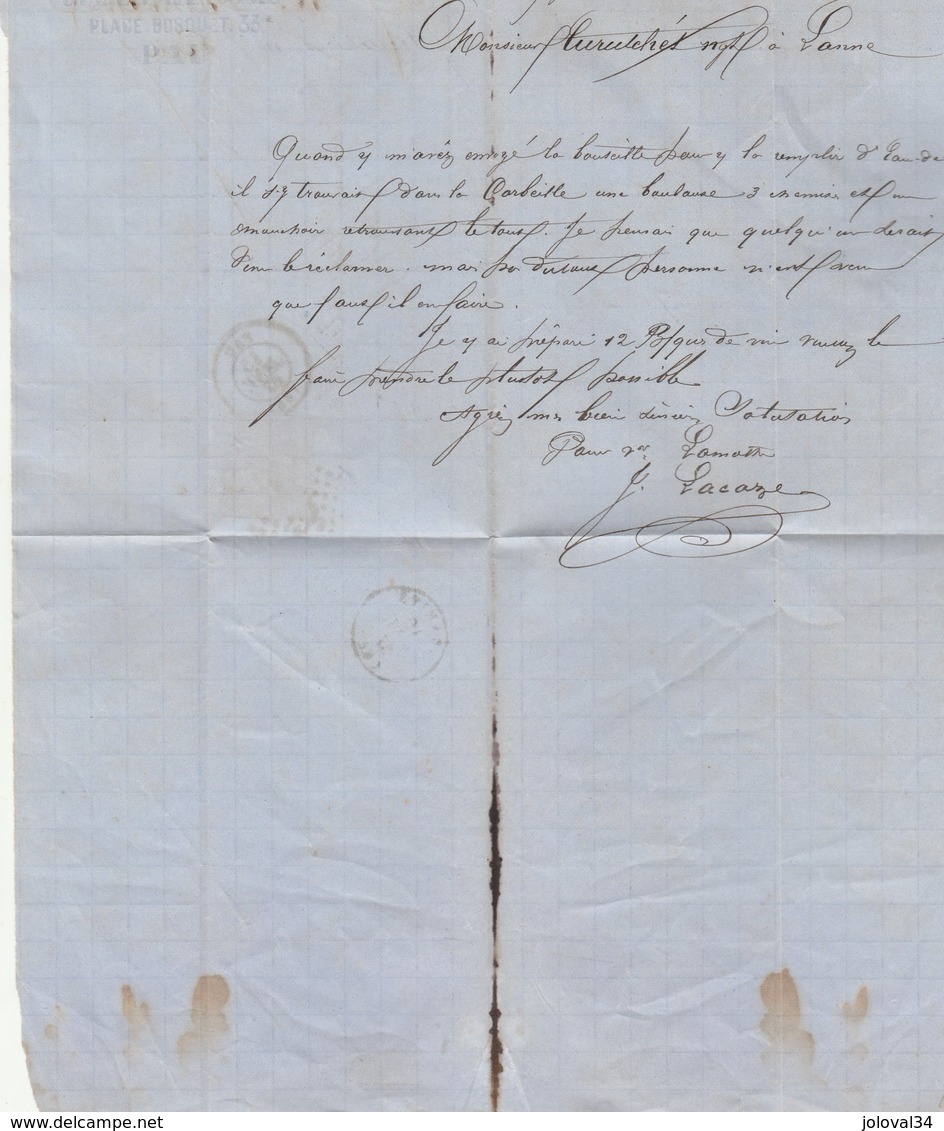 PLACE BOSQUET. 33
Monsieur ngt à Lanne
Quand y m'avéz envoyé la bouteille pour y la remplir d'Eau-de
il s'y trouvait dans la Corbeille une 3 chemises et un
mouchoir le tout. Je pensais que quelqu'un serait
venu le réclamer. mais pas du tout personne n'est venu
que faut il en faire.
Je y ai préparé 12 de vin veuillez le
faire prendre le plustot possible
Agréez mes bien sincères Salutations
Pour vve Lamothe
J. Lacaze
www.delcampe.net
joloval34